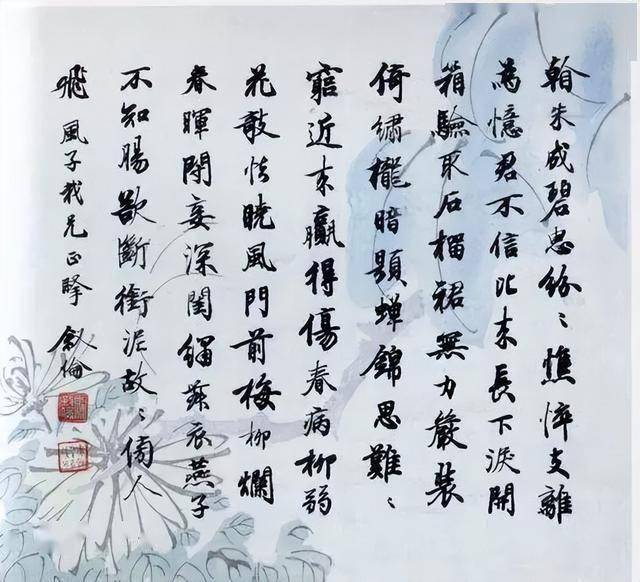 看朱成碧思紛〻憔悴支離
為憶君不信比來長下淚開
箱驗取石榴裙無力嚴裝
倚繡櫳暗題蟬錦思難〻
窮近來贏得傷春病柳弱
花欹怯曉風門前梅柳爛
春暉閉妾深閨繡舞衣燕子
不知腸欲斷銜泥故〻傍人
飛 風子我兄正 叙倫